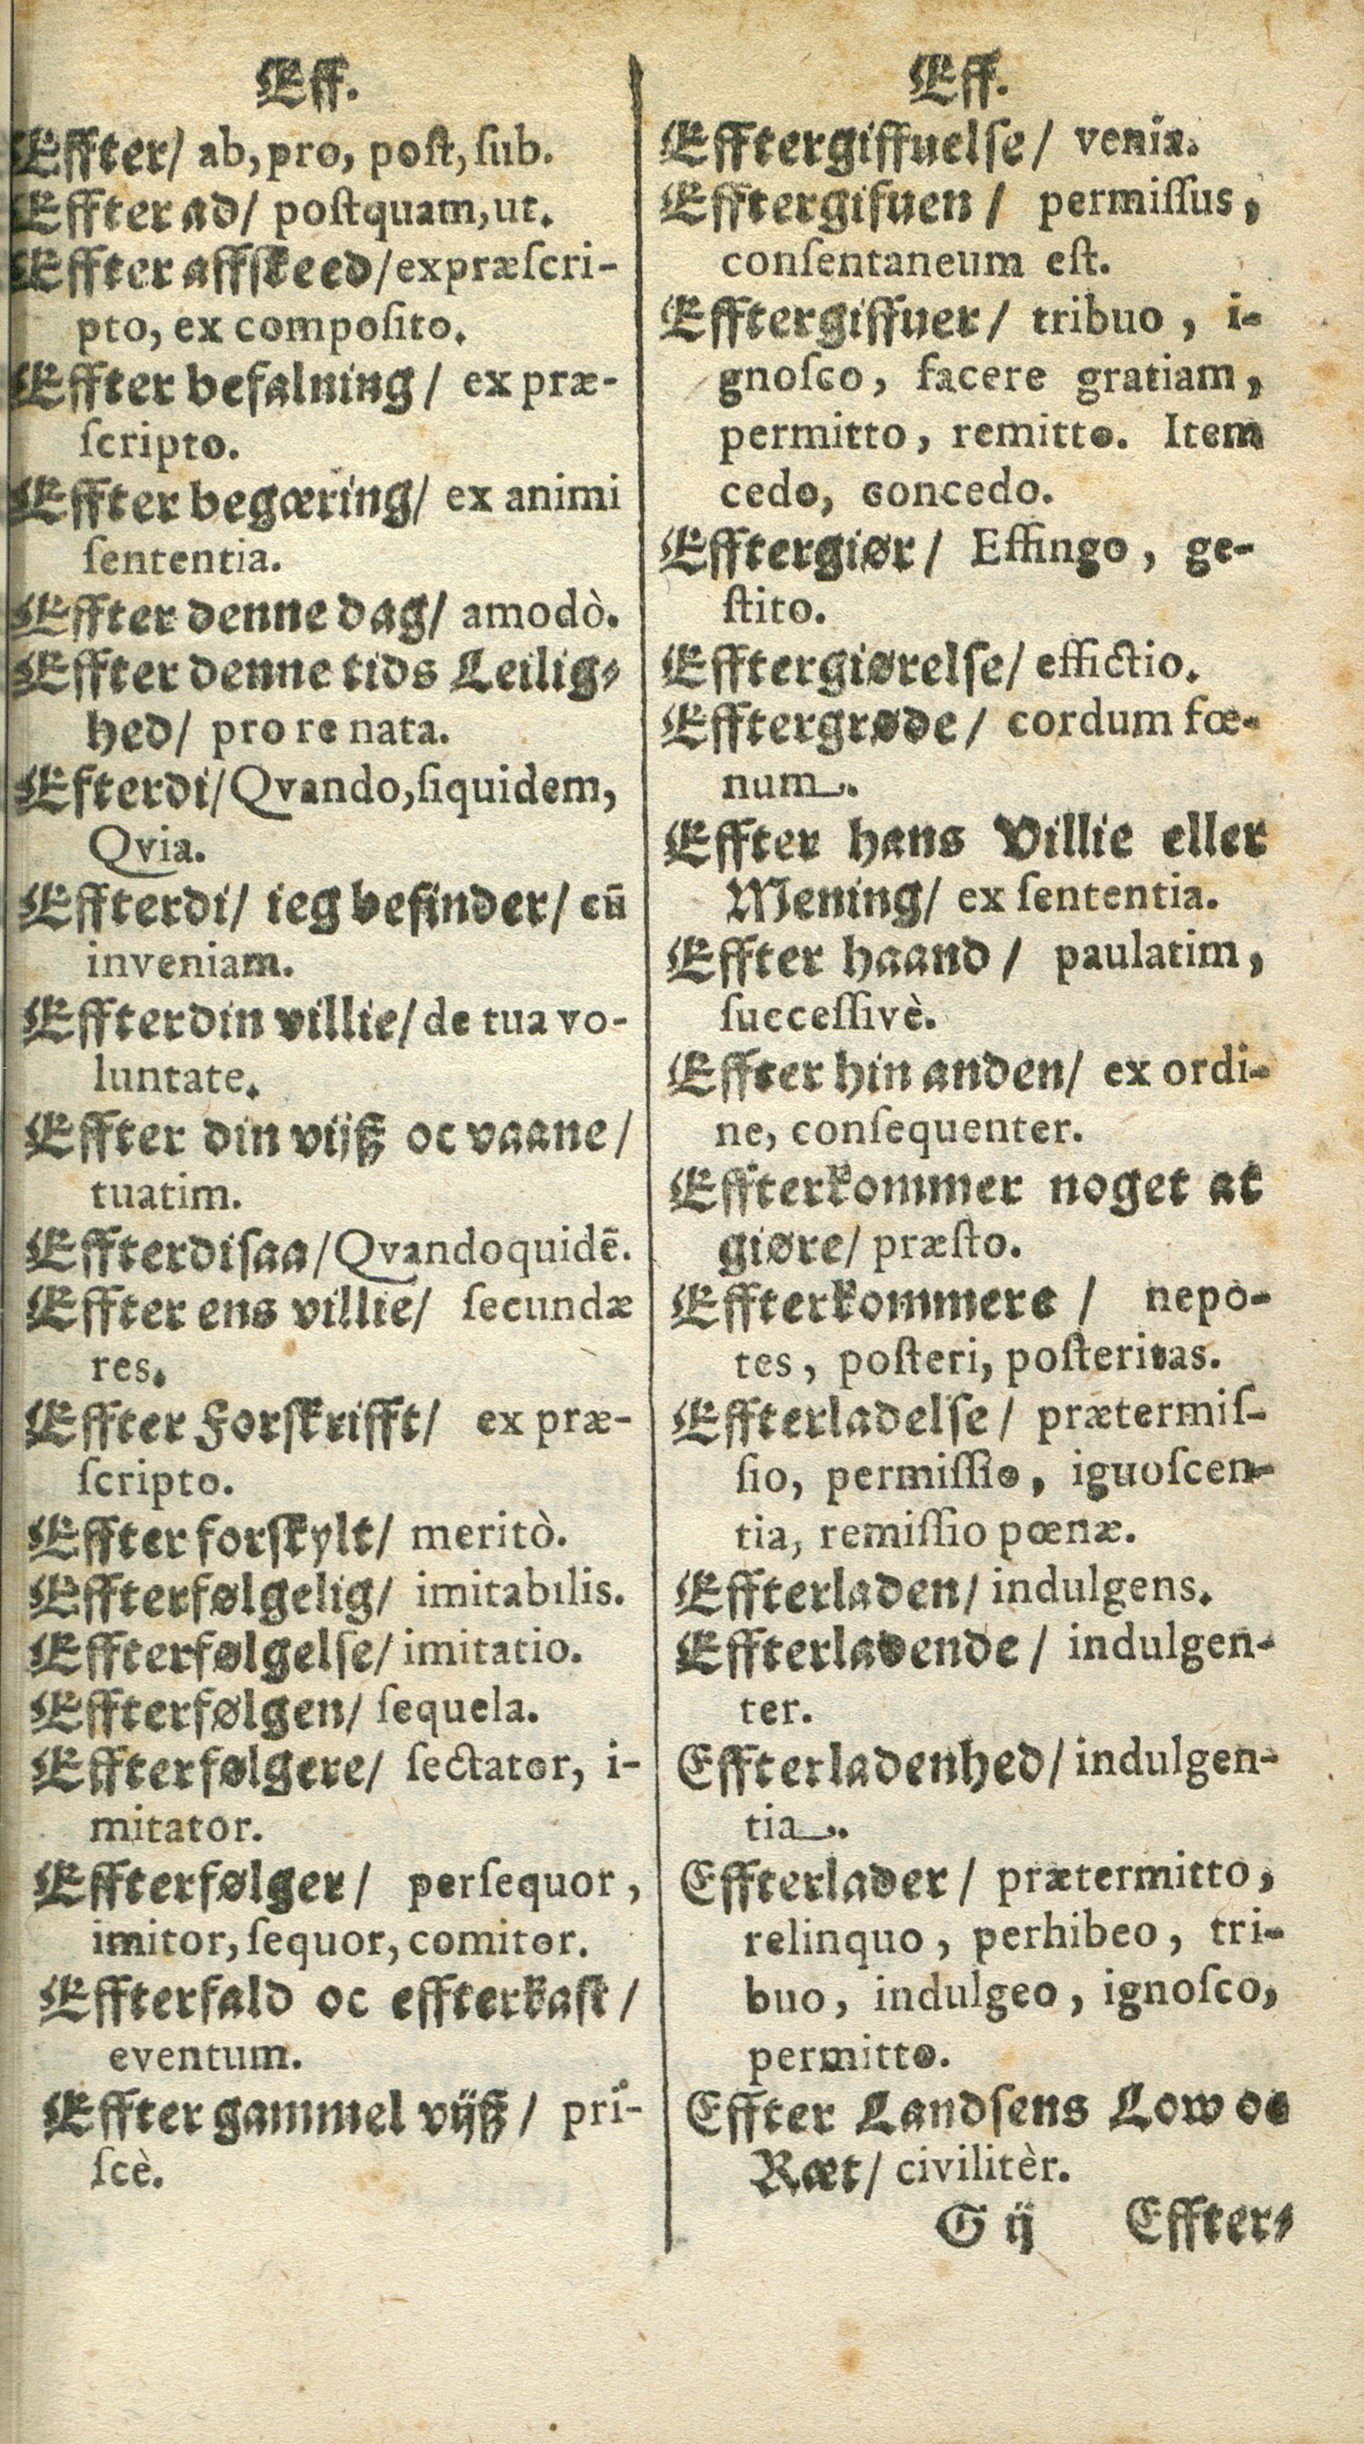 Eff.
Effter/ ab, pro, poſt, ſub.
Effter ad/ poſtquam, ut.
Effter affſkeed/ expræſcri-
pto, ex compoſito.
Effter befalning/ ex præ-
ſcripto.
Effter begæring/ ex animi
ſententia.
Effter denne dag/ amodò.
Effter denne tids Leilig-
hed/ pro re nata.
Efterdi/ Qvando, ſiquidem,
Qvia.
Effterdi/ ieg befinder/ cū
inveniam.
Effterdin villie/ de tua vo-
luntate.
Effter din vijß oc vaane/
tuatim.
Effterdiſaa/ Qvandoquidē.
Effter ens villie/ ſecundæ
res.
Effter Forſkrifft/ ex præ-
ſcripto.
Effter forſkylt/ meritò.
Effterfølgelig/ imitabilis.
Effterfølgelſe/ imitatio.
Effterfølgen/ ſequela.
Effterfølgere/ ſectator, i-
mitator.
Effterfølger/ perſequor,
imitor, ſequor, comitor.
Effterfald oc effterkaſt/
eventum.
Effter gammel vijß/ pri-
ſcè.
Eff.
Efftergiffuelſe/ venia.
Efftergifuen/ permiſſus,
conſentaneum eſt.
Efftergiffuer/ tribuo, i-
gnoſco, facere gratiam,
permitto, remitto. Item
cedo, concedo.
Efftergiør/ Effingo, ge-
ſtito.
Efftergiørelſe/ effictio.
Efftergrøde/ cordum fœ-
num.
Effter hans Villie eller
Mening/ ex ſententia.
Effter haand/ paulatim,
ſucceſſivè.
Effter hin anden/ ex ordi-
ne, conſequenter.
Effterkommer noget at
giøre/ præſto.
Effterkommere/ nepo-
tes, poſteri, poſteritas.
Effterladelſe/ prætermiſ-
ſio, permiſſio, iguoſcen-
tia, remiſſio pœnæ.
Effterladen/ indulgens.
Effterladende/ indulgen-
ter.
Effterladenhed/ indulgen-
tia.
Effterlader/ prætermitto,
relinquo, perhibeo, tri-
buo, indulgeo, ignoſco,
permitto.
Effter Landſens Low oc
Ræt/ civilitèr.
G ij Effter-